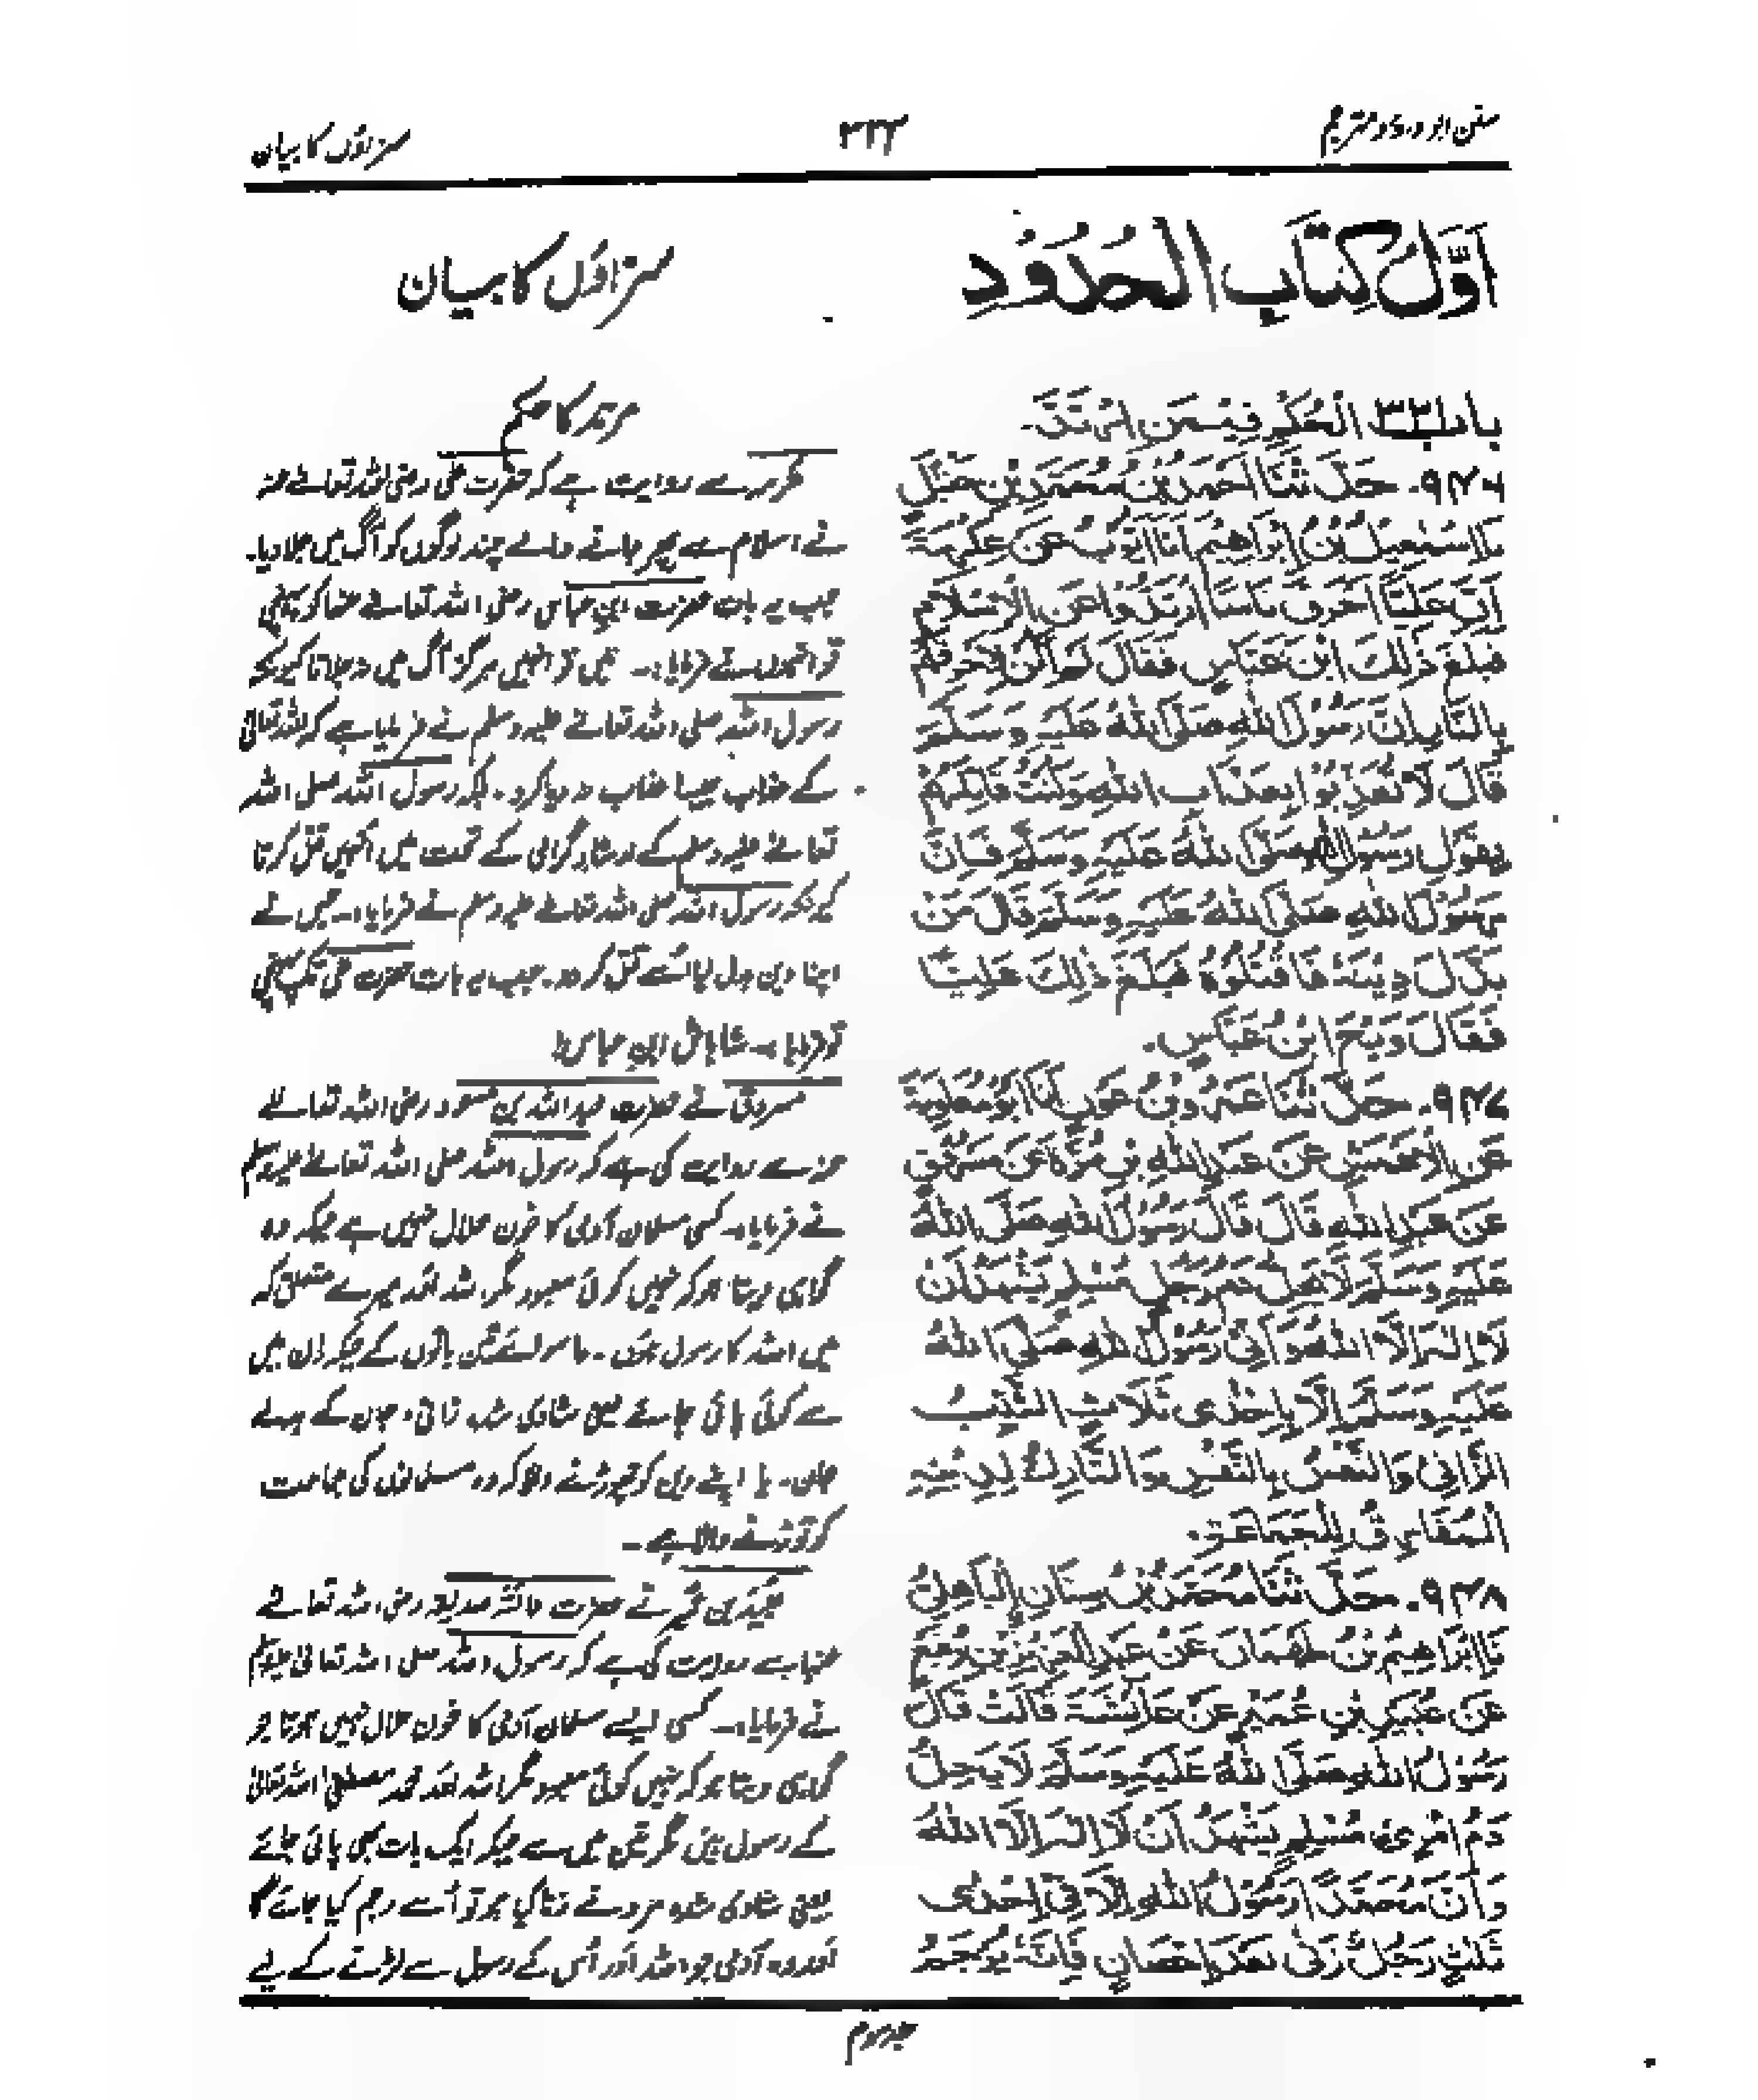 سنن ابو داؤد مترجم
۳۲۲
سزاؤں کا بیان
اَوَّلُ کِتَابِ الْحُدُوْدِ
باب۳۳ الْحُكْمِ فِيْمَنِ ارْتَدَّ۔
۹۴۶۔ حَدَّثَنَا اَحْمَدُ بْنُ مُحَمَّدِ بْنِ حَنْبَلٍ
نَا اِسْمٰعِيْلُ بْنُ اِبْرَاهِيْمَ اَنَا اَيُّوْبُ عَنْ عِكْرِمَةَ
اَنَّ عَلِيًّا اَحْرَقَ نَاسًا ارْتَدُّوْا عَنِ الْاِسْلَامِ
فَبَلَغَ ذٰلِكَ ابْنَ عَبَّاسٍ فَقَالَ لَمْ اَكُنْ لِاُحْرِقَهُمْ
بِالنَّارِ اِنَّ رَسُوْلَ اللهِ صَلَّى اللهُ عَلَيْهِ وَسَلَّمَ
قَالَ لَا تُعَذِّبُوْا بِعَذَابِ اللهِ وَكُنْتُ قَاتِلَهُمْ
بِقَوْلِ رَسُوْلِ اللهِ صَلَّى اللهُ عَلَيْهِ وَسَلَّمَ فَاِنَّ
رَسُوْلَ اللهِ صَلَّى اللهُ عَلَيْهِ وَسَلَّمَ قَالَ مَنْ
بَدَّلَ دِيْنَهٗ فَاقْتُلُوْهُ فَبَلَغَ ذٰلِكَ عَلِيًّا
فَقَالَ وَيْحَ ابْنِ عَبَّاسٍ۔
۹۴۷۔ حَدَّثَنَا عَمْرُو بْنُ عَوْنٍ اَنَا اَبُوْ مُعَاوِيَةَ
عَنِ الْاَعْمَشِ عَنْ عَبْدِ اللهِ بْنِ مُرَّةَ عَنْ مَسْرُوْقٍ
عَنْ عَبْدِ اللهِ قَالَ قَالَ رَسُوْلُ اللهِ صَلَّى اللهُ
عَلَيْهِ وَسَلَّمَ لَا يَحِلُّ دَمُ رَجُلٍ مُسْلِمٍ يَشْهَدُ اَنْ
لَا اِلٰهَ اِلَّا اللهُ وَاَنِّيْ رَسُوْلُ اللهِ صَلَّى اللهُ
عَلَيْهِ وَسَلَّمَ اِلَّا بِاِحْدٰى ثَلَاثٍ الثَّيِّبُ
الزَّانِيْ وَالنَّفْسُ بِالنَّفْسِ وَالتَّارِكُ لِدِيْنِهِ
الْمُفَارِقُ لِلْجَمَاعَةِ۔
۹۴۸۔ حَدَّثَنَا مُحَمَّدُ بْنُ سِنَانٍ الْبَاهِلِيُّ
نَا اِبْرَاهِيْمُ بْنُ طَهْمَانَ عَنْ عَبْدِ الْعَزِيْزِ بْنِ رُفَيْعٍ
عَنْ عُبَيْدِ بْنِ عُمَيْرٍ عَنْ عَائِشَةَ قَالَتْ قَالَ
رَسُوْلُ اللهِ صَلَّى اللهُ عَلَيْهِ وَسَلَّمَ لَا يَحِلُّ
دَمُ امْرِئٍ مُسْلِمٍ يَشْهَدُ اَنْ لَا اِلٰهَ اِلَّا اللهُ
وَاَنَّ مُحَمَّدًا رَسُوْلُ اللهِ اِلَّا فِيْ اِحْدٰى
ثَلٰثٍ رَجُلٌ زَنٰى بَعْدَ اِحْصَانٍ فَاِنَّهٗ يُرْجَمُ
سزاؤں کا بیان
مرتد کا حکم
عکرمہ سے روایت ہے کہ حضرت علی رضی اللہ تعالےٰ عنہ
نے اسلام سے پھر جانے والے چند لوگوں کو آگ میں جلا دیا۔
جب یہ بات حضرت ابنِ عباس رضی اللہ تعالےٰ عنہما کو پہنچی
تو انہوں نے فرمایا:۔ میں تو انہیں ہرگز آگ میں نہ جلاتا کیونکہ
رسول اللہ صلی اللہ تعالےٰ علیہ وسلم نے فرمایا ہے کہ اللہ تعالیٰ
کے عذاب جیسا عذاب نہ دیا کرو۔ بلکہ رسول اللہ صلی اللہ
تعالےٰ علیہ وسلم کے ارشادِ گرامی کے تحت میں انہیں قتل کرتا
کیونکہ رسول اللہ صلی اللہ تعالےٰ علیہ وسلم نے فرمایا:۔ جس نے
اپنا دین بدل لیا اُسے قتل کر دو۔ جب یہ بات حضرت علی تک پہنچی
تو فرمایا:۔ شاباش ابنِ عباس!
مسروق نے حضرت عبد اللہ بن مسعود رضی اللہ تعالےٰ
عنہ سے روایت کی ہے کہ رسول اللہ صلی اللہ تعالےٰ علیہ وسلم
نے فرمایا:۔ کسی مسلمان آدمی کا خون حلال نہیں ہے جبکہ وہ
گواہی دیتا ہو کہ نہیں کوئی معبود مگر اللہ اور میرے متعلق کہ
میں اللہ کا رسول ہوں۔ ماسوائے تین باتوں کے جبکہ اُن میں
سے کوئی پائی جائے یعنی شادی شدہ زانی، جان کے بدلے
جان۔ یا اپنے دین کو چھوڑنے والا کہ وہ مسلمانوں کی جماعت
کو توڑنے والا ہے۔
عبید بن عمیر نے حضرت عائشہ صدیقہ رضی اللہ تعالےٰ
عنہا سے روایت کی ہے کہ رسول اللہ صلی اللہ تعالیٰ علیہ وسلم
نے فرمایا:۔ کسی ایسے مسلمان آدمی کا خون حلال نہیں ہوتا جو
گواہی دیتا ہو کہ نہیں کوئی معبود مگر اللہ اور محمد مصطفےٰ اللہ تعالیٰ
کے رسول ہیں مگر تین میں سے جبکہ ایک بات بھی پائی جائے
یعنی شادی شدہ مرد نے زنا کیا ہو تو اُسے رجم کیا جائے گا
اور وہ آدمی جو اللہ اور اُس کے رسول سے لڑنے کے لیے
جلد سوم